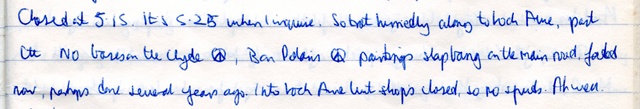 Closed at 5.15. It's 5.25 when I inquire. So trot hurriedly along to Loch Awe, past
the No bases on the Clyde ☮, Ban Polaris ☮ paintings slap bang on the main road, faded
now, perhaps done several years ago. Into Loch Awe but shops closed, so no spuds. Ah well.